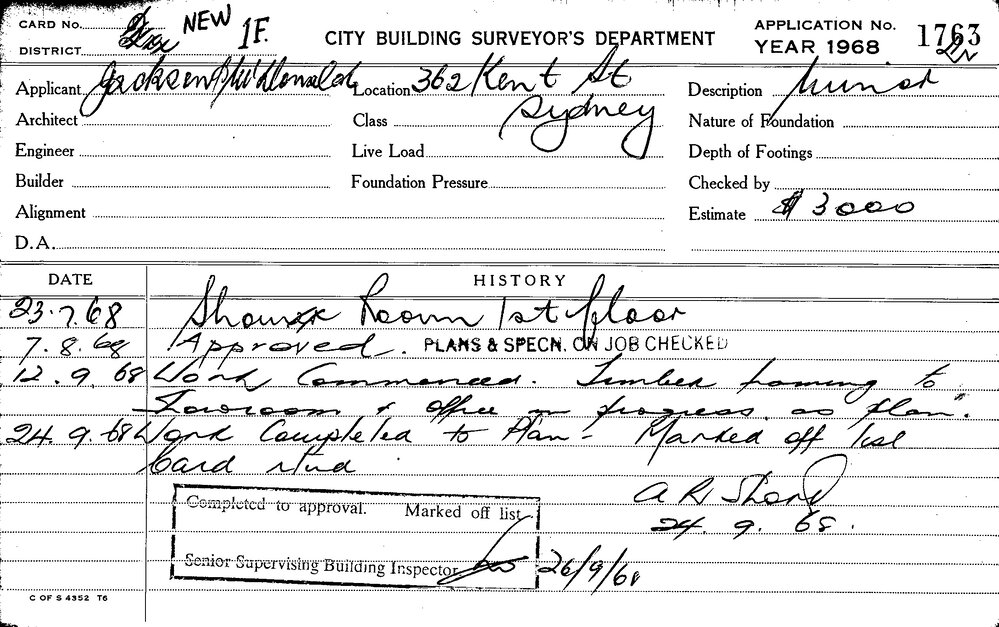 CARD No. NEW 1F. CITY BUILDING SURVEYOR'S DEPARTMENT APPLICATION No. 1763
DISTRICT YEAR 1968
Applicant Jackson & McDonald Location 362 Kent St Description Minor
Architect Class Sydney Nature of Foundation
Engineer Live Load Depth of Footings
Builder Foundation Pressure Checked by
Alignment Estimate $ 3000
D.A.
DATE HISTORY
23.7.68 Show Room 1st floor
7.8.68 Approved. PLANS & SPECN. ON JOB CHECKED
12.9.68 Work Commenced. Timber framing to
Showroom & office in progress as plan.
24.9.68 Work Completed to Plan - Marked off list
Card
A R
24.9.68.
Completed to approval. Marked off list
Senior Supervising Building Inspector 26/9/68
C OF S 4352 T6